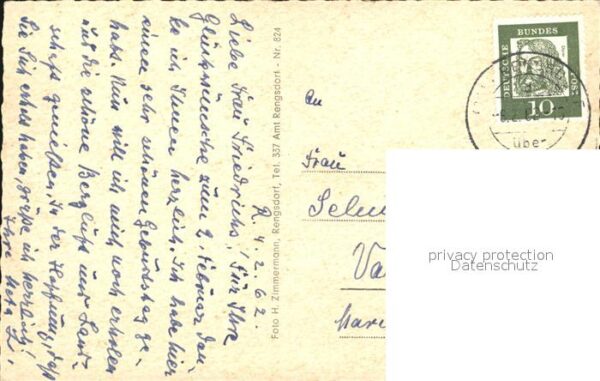 R. 4. 2. 62.
Liebe Frau Friedrichs! Für Ihre
Glückwünsche zum 2. Februar dan-
ke ich Ihnen herzlich. Ich habe hier
einen sehr schönen Geburtstag ge-
habt. Nun will ich mich noch erholen
und die schöne Bergluft und Land-
schaft genießen. In der Hoffnung, daß
Sie sich erholt haben, grüße ich herzlich!
Ihre
Foto H. Zimmermann, Rengsdorf, Tel. 337 Amt Rengsdorf - Nr. 824
DEUTSCHE BUNDESPOST
10
übe-
An
Frau
Selm
Va
Mari
privacy protection
Datenschutz